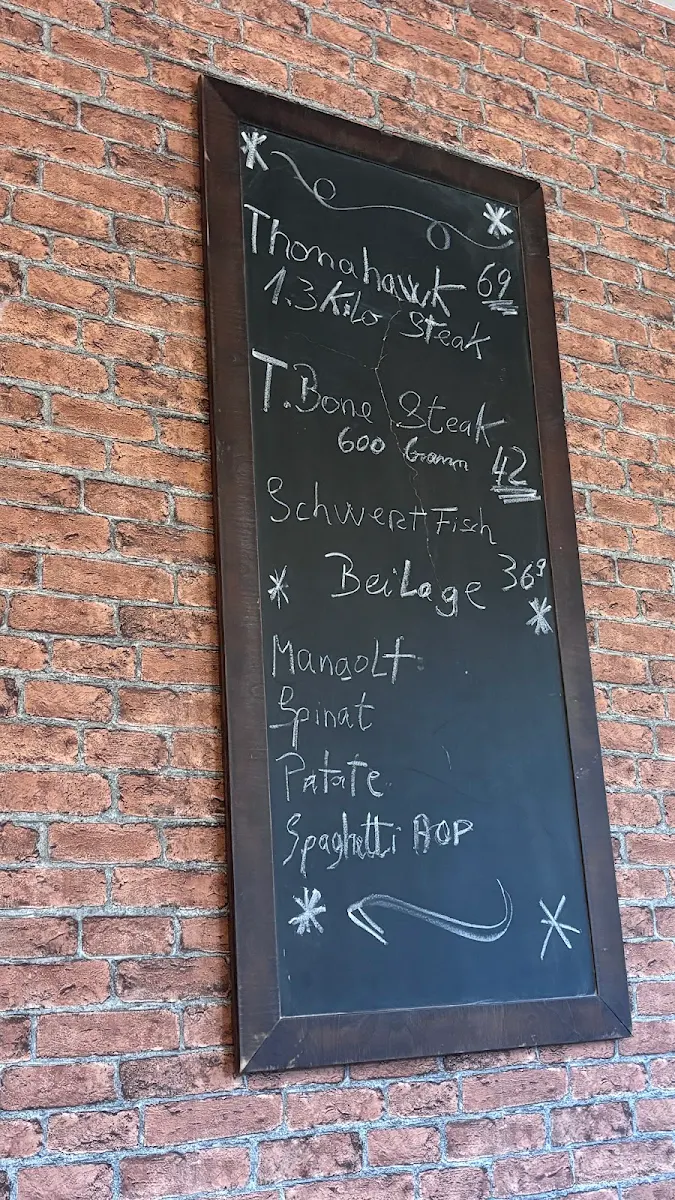 Thomahawk 69
1.3 Kilo Steak
T. Bone Steak
600 Gramm 42
Schwert Fisch
Beilage 36⁹
Mangolt
Spinat
Patate
Spaghetti AOP